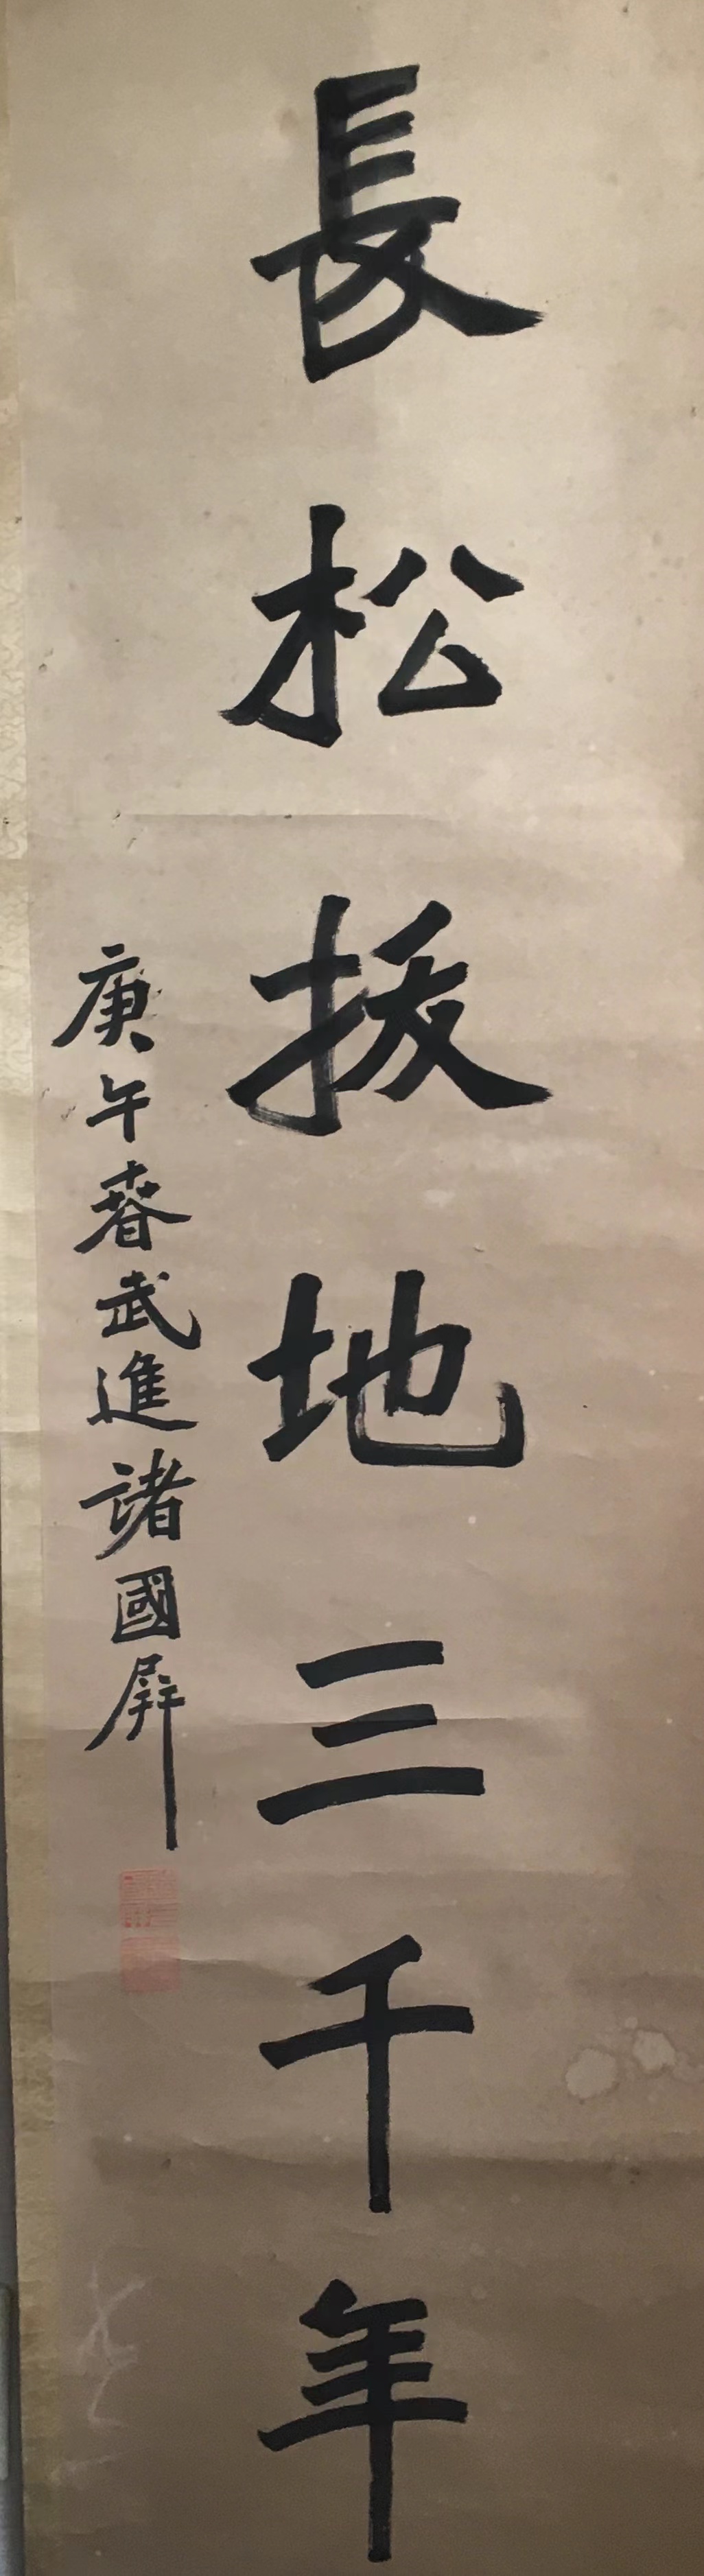 長松拔地三千年
庚午春武進諸國屏